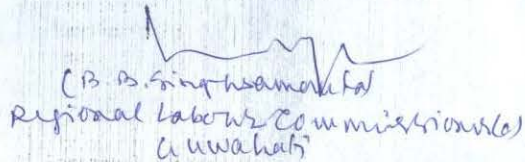 (B.B. Singhsamanta)
Regional Labour Commissioner(c)
Guwahati